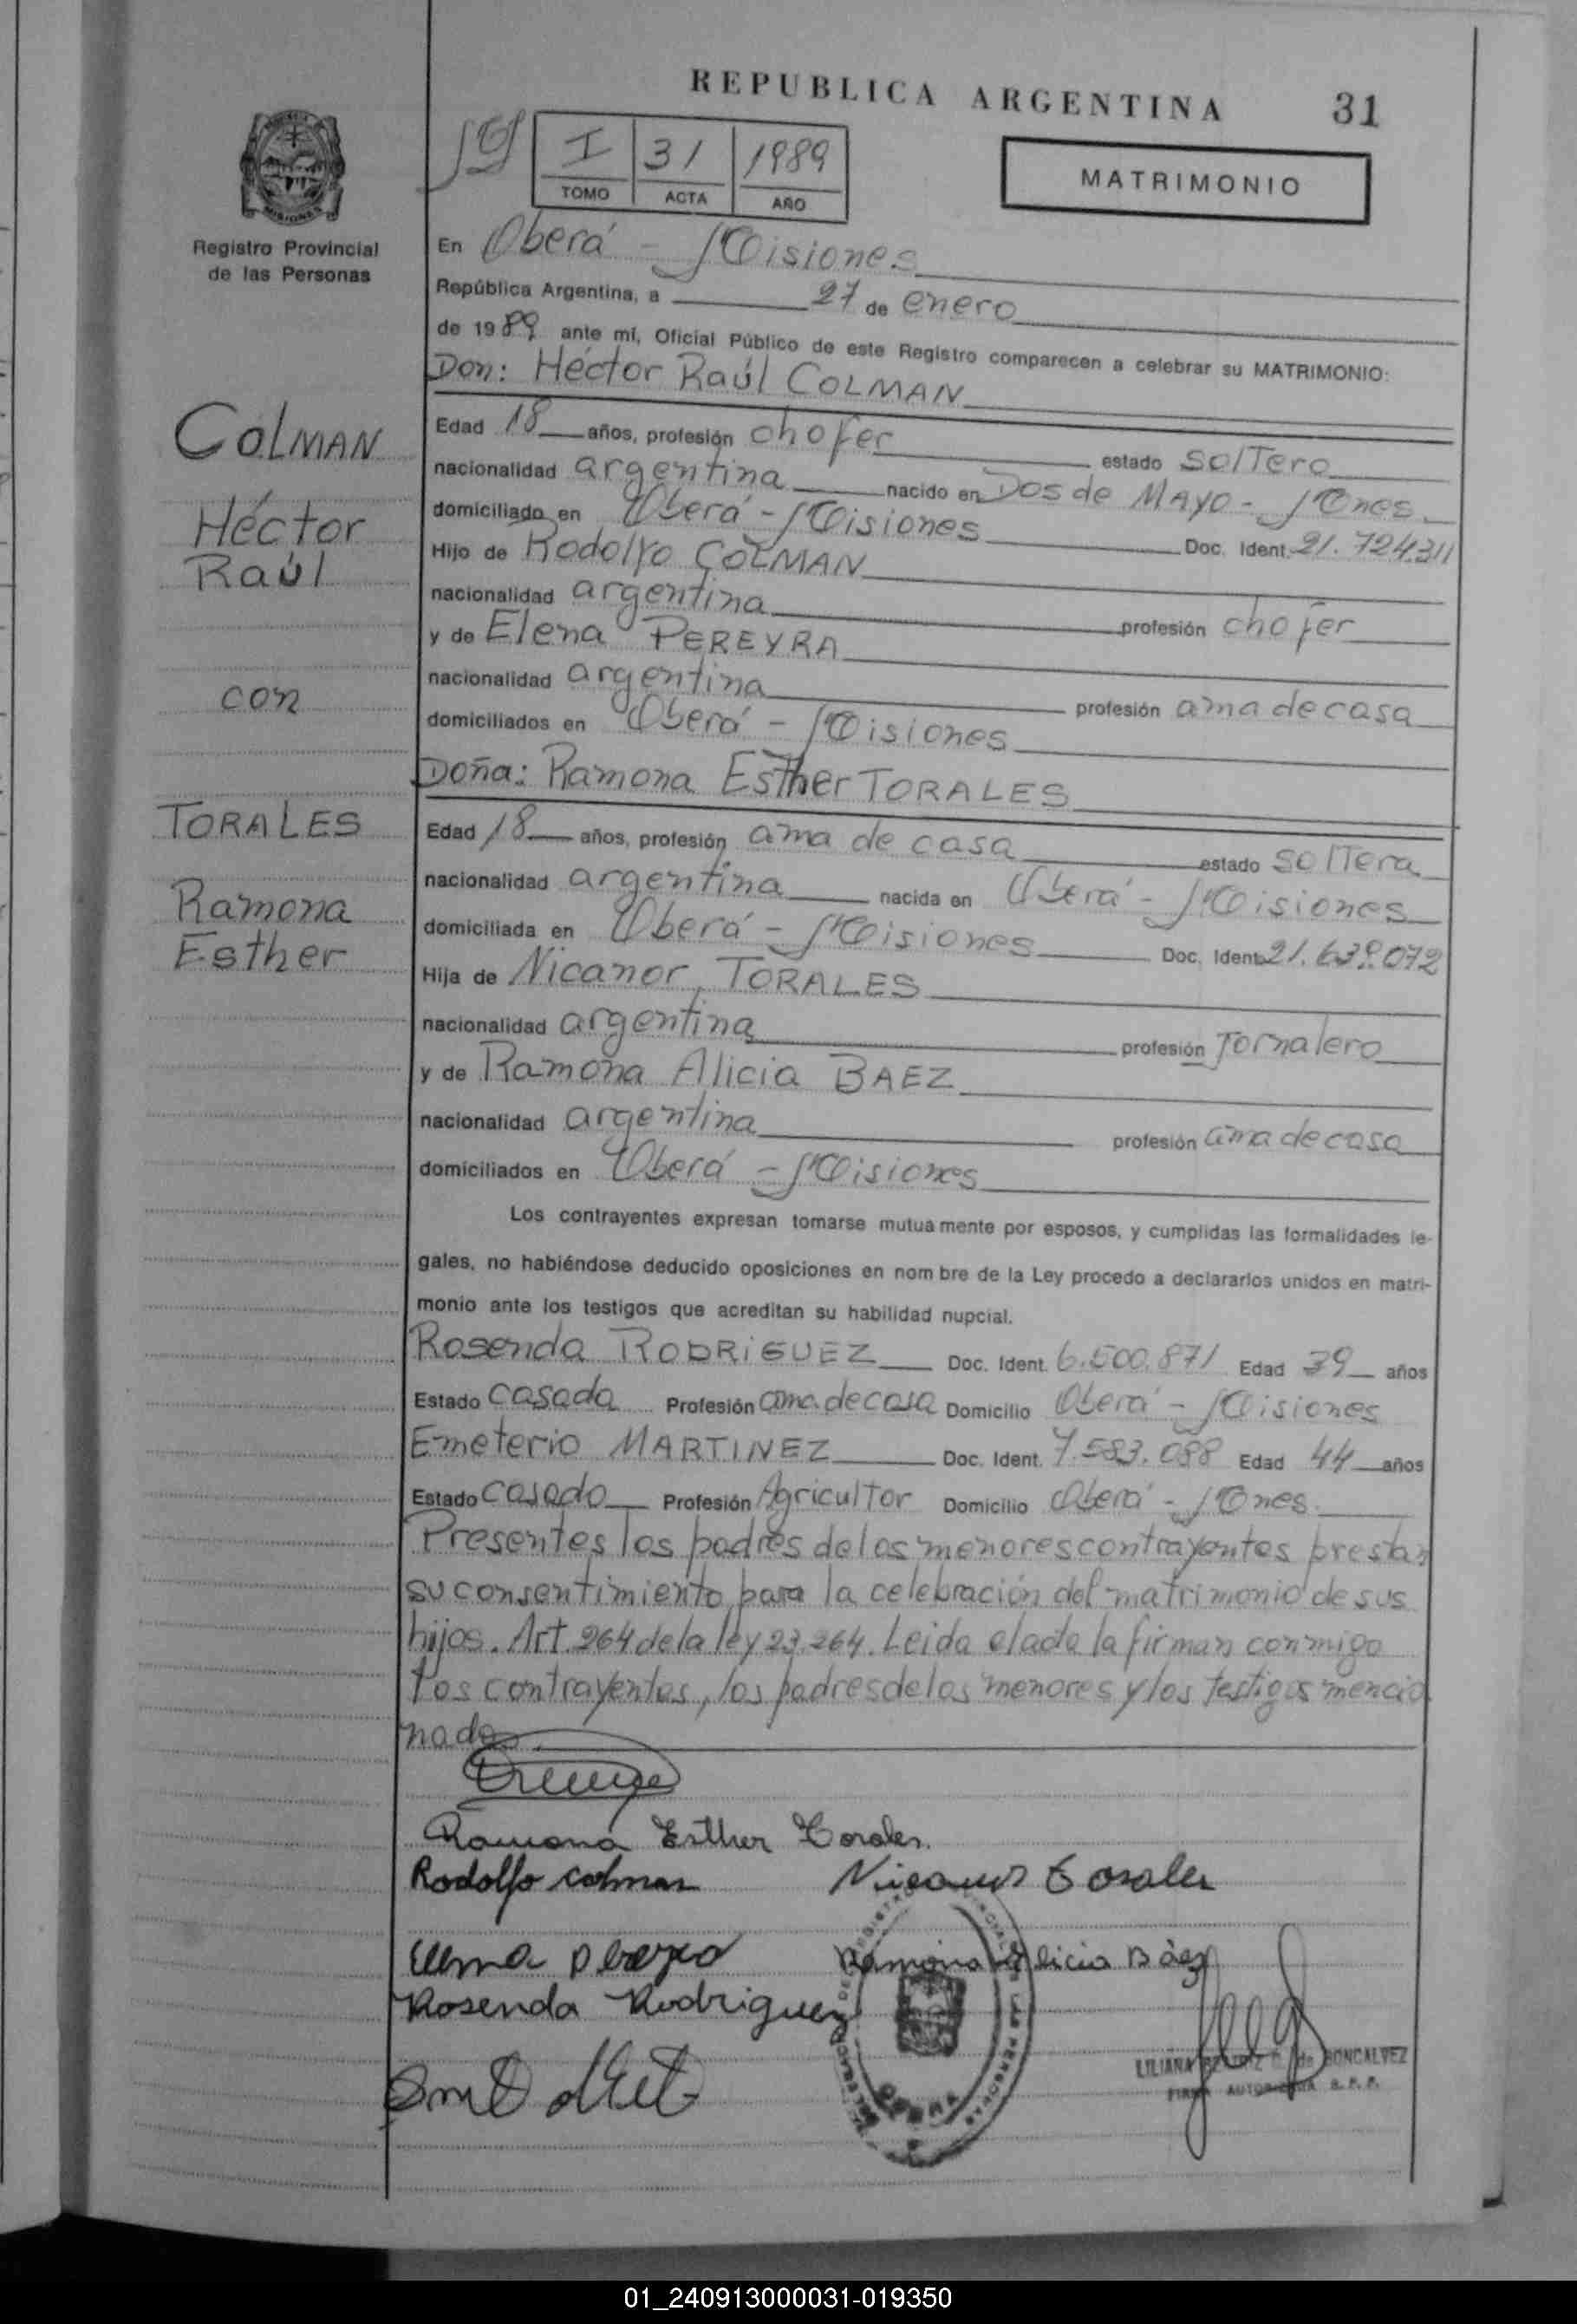 REPUBLICA ARGENTINA 31
I 31 1989
TOMO ACTA AÑO
MATRIMONIO
Registro Provincial
de las Personas
En Oberá - Misiones
República Argentina, a 27 de enero
de 1989 ante mí, Oficial Público de este Registro comparecen a celebrar su MATRIMONIO:
Don: Héctor Raúl COLMAN
COLMAN
Héctor
Raúl
con
TORALES
Ramona
Esther
Edad 18 años, profesión chofer estado soltero
nacionalidad argentina nacido en Dos de Mayo - Mnes
domiciliado en Oberá - Misiones Doc. Ident. 21.724.311
Hijo de Rodolfo COLMAN
nacionalidad argentina profesión chofer
y de Elena PEREYRA
nacionalidad argentina profesión ama de casa
domiciliados en Oberá - Misiones
Doña: Ramona Esther TORALES
Edad 18 años, profesión ama de casa estado soltera
nacionalidad argentina nacida en Oberá - Misiones
domiciliada en Oberá - Misiones Doc. Ident.
Hija de Nicanor TORALES
nacionalidad argentina profesión Jornalero
y de Ramona Alicia BAEZ
nacionalidad argentina profesión ama de casa
domiciliados en Oberá - Misiones
Los contrayentes expresan tomarse mutuamente por esposos, y cumplidas las formalidades le-
gales, no habiéndose deducido oposiciones en nombre de la Ley procedo a declararlos unidos en matri-
monio ante los testigos que acreditan su habilidad nupcial.
Rosenda RODRIGUEZ Doc. Ident. 6.500.871 Edad 39 años
Estado casada Profesión ama de casa Domicilio Oberá - Misiones
Emeterio MARTINEZ Doc. Ident. 7.583.088 Edad 44 años
Estado casado Profesión Agricultor Domicilio Oberá - Mnes.
Presentes los padres de los menores contrayentes prestan
su consentimiento para la celebración del matrimonio de sus
hijos. Art. 264 de la ley 23.264. Leida el acta la firman conmigo
los contrayentes, los padres de los menores y los testigos mencio
nados.
Ramona Esther Torales
Rodolfo Colman Nicanor Torales
Ramona Alicia Báez
Rosenda Rodriguez
LILIANA BEATRIZ de GONCALVEZ
FIRMA AUTORIZADA R. P. P.
01_240913000031-019350